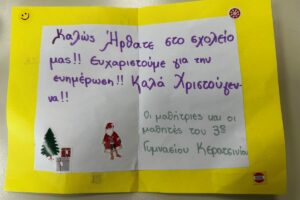 Καλώς Ήρθατε στο σχολείο
μας!! Ευχαριστούμε για την
ενημέρωση!! Καλά Χριστούγεν-
να!!
Οι μαθήτριες και οι
μαθητές του 3ου
Γυμνασίου Κερατσινίου